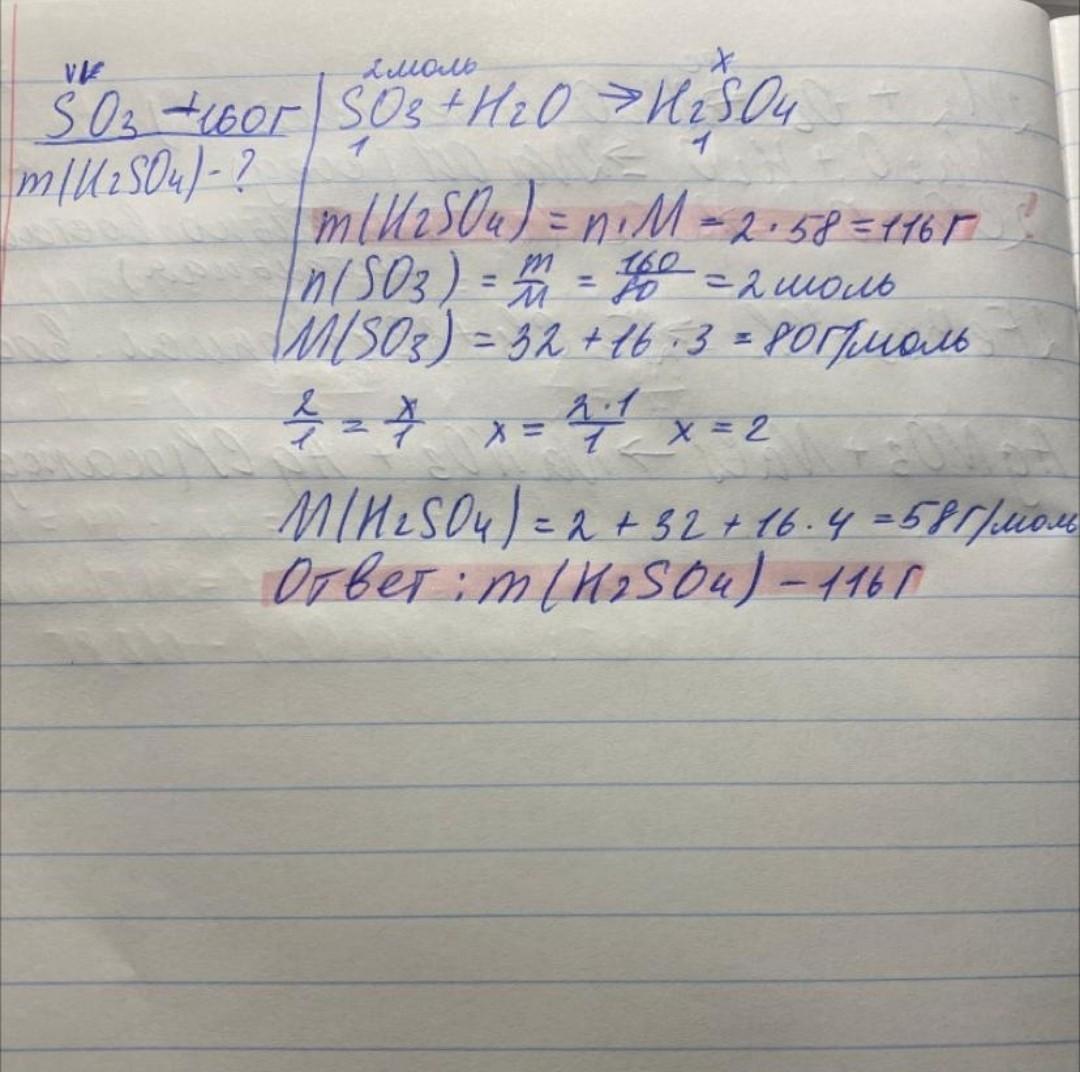 SO3 - 160г
m(H2SO4) - ?
2 моль x
SO3 + H2O → H2SO4
1 1
m(H2SO4) = n·M = 2·58 = 116г
n(SO3) = m/M = 160/80 = 2 моль
M(SO3) = 32 + 16·3 = 80г/моль
2/1 = x/1 x = 2·1/1 x = 2
M(H2SO4) = 2 + 32 + 16·4 = 58г/моль
Ответ: m(H2SO4) - 116г